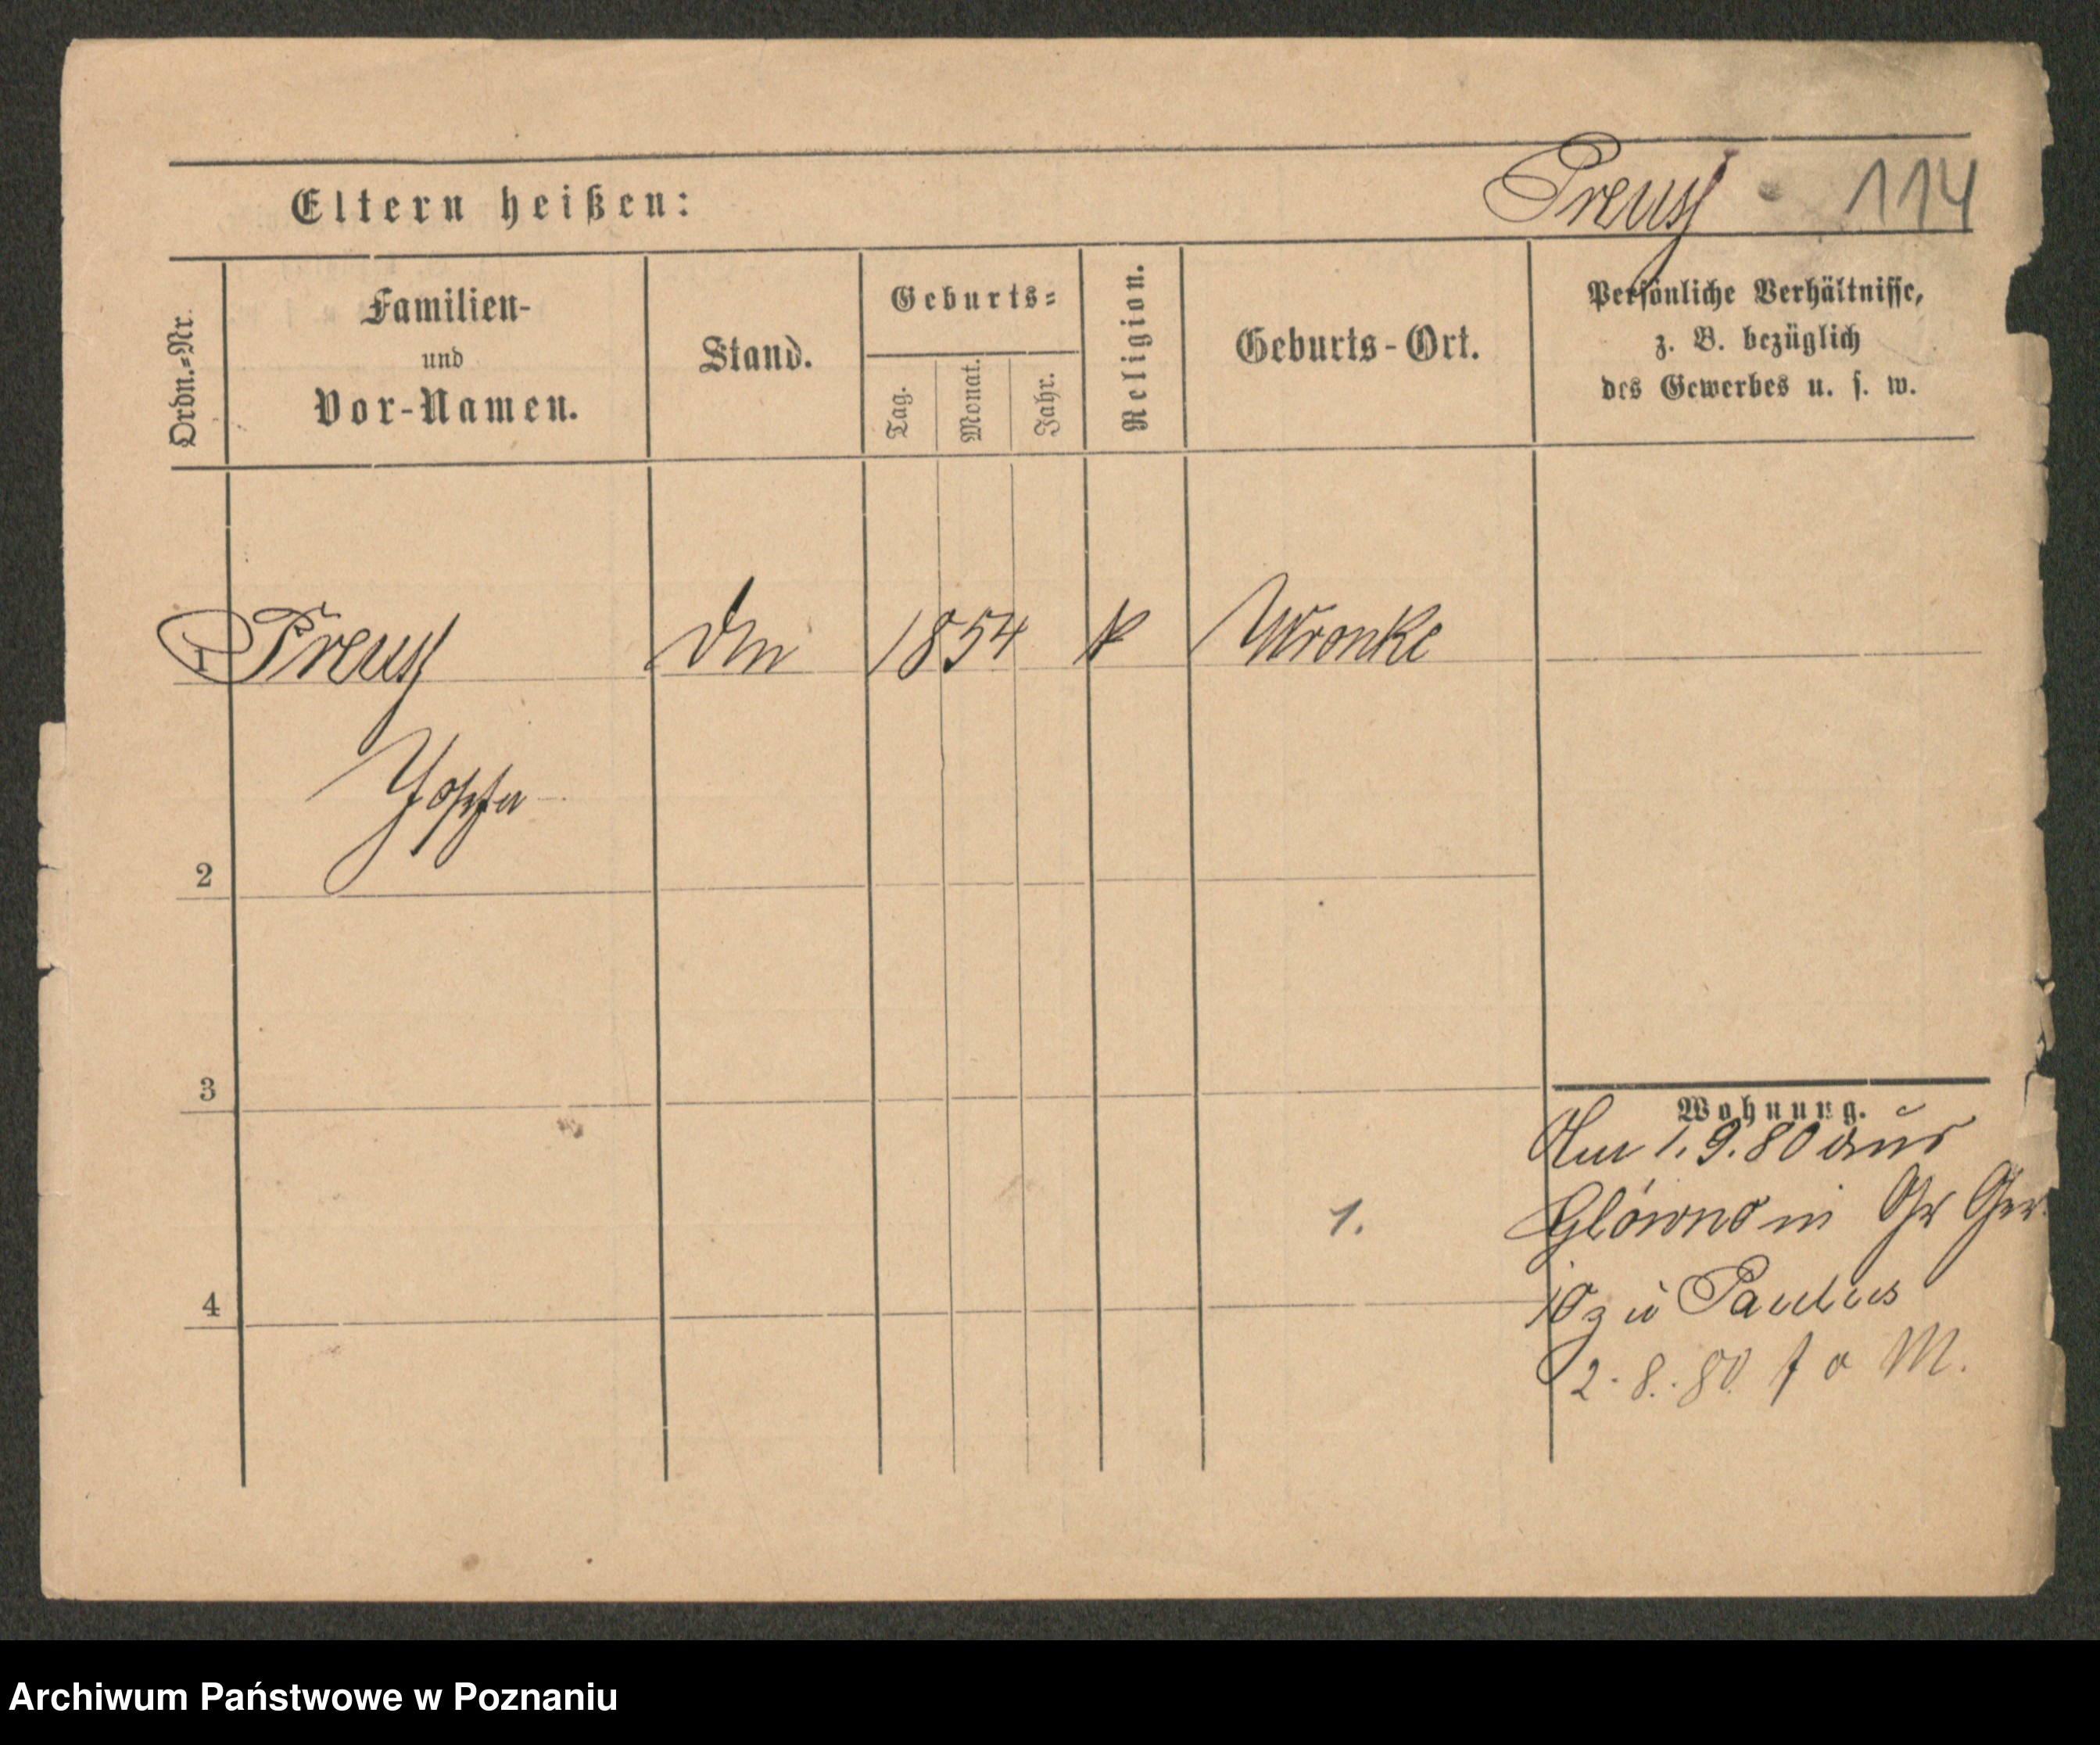 Eltern heißen:
Preuss 114
Ordn.-Nr.
Familien-
und
Vor-Namen.
Stand.
Geburts-
Tag.
Monat.
Jahr.
Religion.
Geburts-Ort.
Persönliche Verhältnisse,
z. B. bezüglich
des Gewerbes u. s. w.
1 Preuss 1854 k Wronke
Josefa
2
3
Wohnung.
Am 1.9.80 aus
Glówno in Gr Ger
1.
10 zu Paulus
4
2.8.80 M.
Archiwum Państwowe w Poznaniu